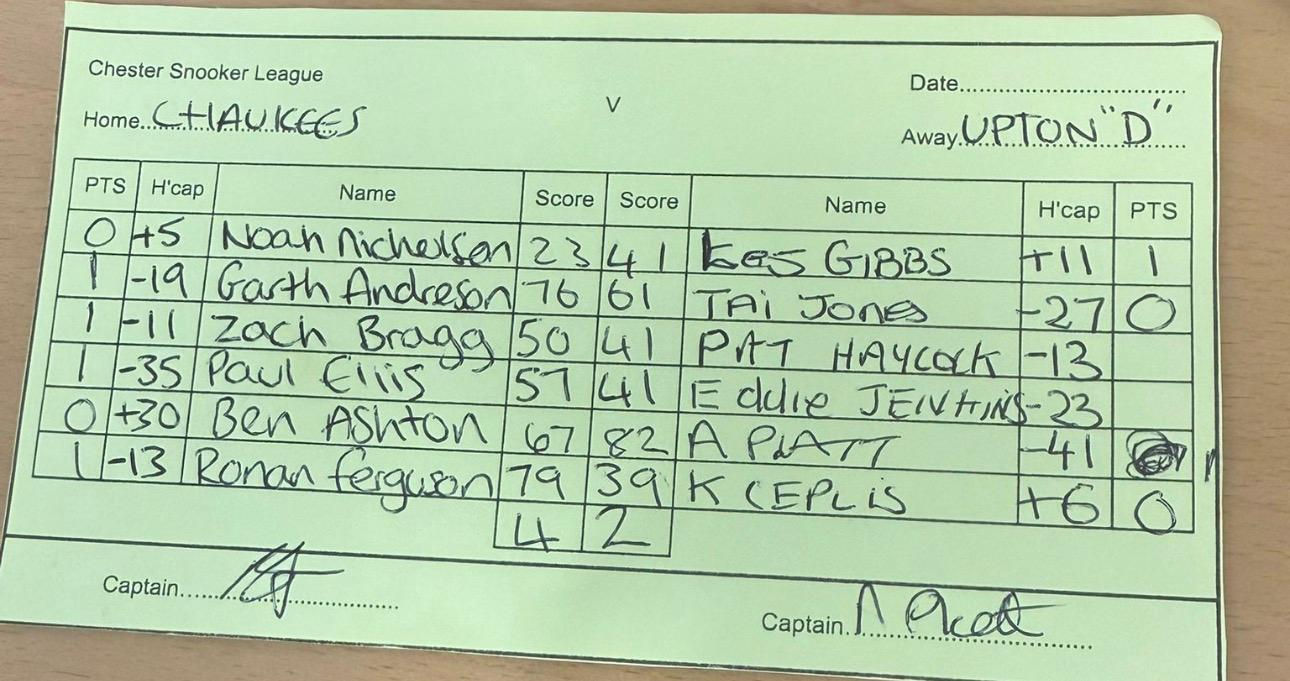 Chester Snooker League
Date
Home CHAUKEES V Away UPTON "D"
PTS H'cap Name Score Score Name H'cap PTS
0 +5 Noah Nicholson 23 41 Les GIBBS +11 1
1 -19 Garth Andreson 76 61 TAi Jones -27 0
1 -11 Zach Bragg 50 41 PAT HAYCOCK -13
1 -35 Paul Ellis 57 41 Eddie JENKINS -23
0 +30 Ben AShton 67 82 A PLATT -41 1
1 -13 Ronan ferguson 79 39 K CEPLiS +6 0
4 2
Captain
Captain